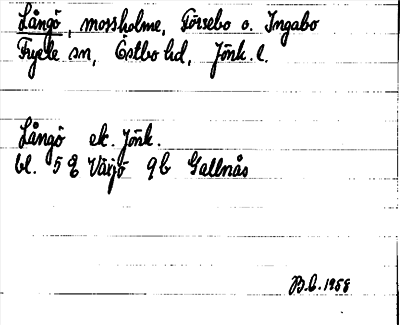 Långö, mossholme, Försebo o. Ingabo
Fryele sn, Östbo hd, Jönk. l.
Långö ek. Jönk.
bl. 5 g Växjö 9 b Gallnås
B.C. 1958